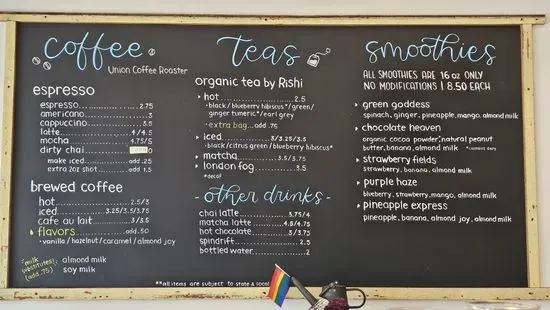 coffee
Union Coffee Roaster
espresso
espresso 2.75
americano 3
cappuccino 3.5
latte 4/4.5
mocha 4.75/5
dirty chai
make iced add .25
extra 2oz shot add 1.5
brewed coffee
hot 2.5/3
iced 3.25/3.5/3.75
cafe au lait 3/3.5
flavors add .50
• vanilla / hazelnut / caramel / almond joy
milk substitutes! (add .75)
almond milk
soy milk
teas
organic tea by Rishi
hot 2.5
• black / blueberry hibiscus* / green/
ginger turmeric* / earl grey
• extra bag... add .75
iced 3/3.25/3.5
• black / citrus green / blueberry hibiscus*
matcha 3.5/3.75
london fog 3.5
*decaf
- other drinks -
chai latte 3.75/4
matcha latte 4.5/4.75
hot chocolate 3/3.75
spindrift 2.5
bottled water 2
**all items are subject to state & local
smoothies
ALL SMOOTHIES ARE 16 oz ONLY
NO MODIFICATIONS | 8.50 EACH
green goddess
spinach, ginger, pineapple, mango, almond milk
chocolate heaven
organic cocoa powder, natural peanut
butter, banana, almond milk
strawberry fields
strawberry, banana, almond milk
purple haze
blueberry, strawberry, mango, almond milk
pineapple express
pineapple, banana, almond joy, almond milk